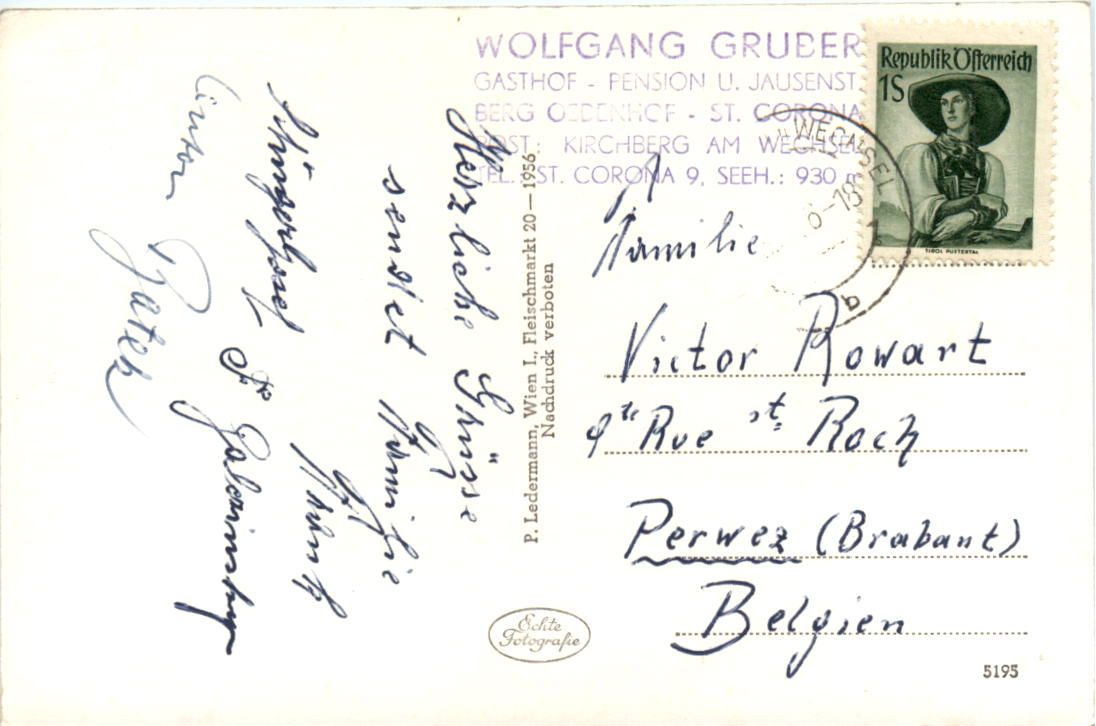 WOLFGANG GRUBER
GASTHOF - PENSION U. JAUSENST.
BERG OEDENHOF - ST. CORONA
POST: KIRCHBERG AM WECHSEL
TEL. ST. CORONA 9, SEEH.: 930 m
Republik Österreich
1S
TIROL PUSTERTAL
WECHSEL
6-18
b
Herzliche Grüsse
sendet Familie
P. Ledermann, Wien I., Fleischmarkt 20—1956
Nachdruck verboten
Familie
Victor Rowart
9te Rue St. Roch
Perwez (Brabant)
Belgien
Echte
Fotografie
5195